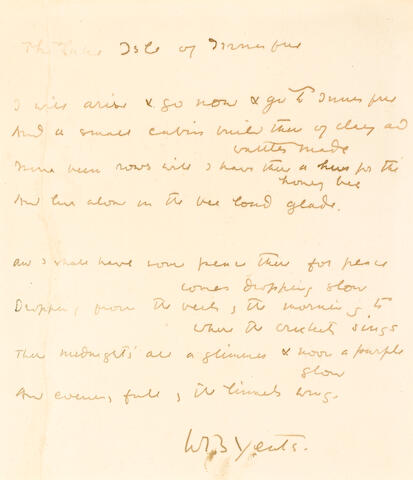 The Lake Isle of Innisfree
I will arise & go now & go to Innisfree
And a small cabin build there of clay and
wattles made
Nine bean rows will I have there a hive for the
honey bee
And live alone in the bee loud glade.
and I shall have some peace there for peace
comes dropping slow
Dropping from the veils of the morning to
where the cricket sings
There midnights all a glimmer & noon a purple
glow
And evening full of the linnets wings.
WB Yeats.